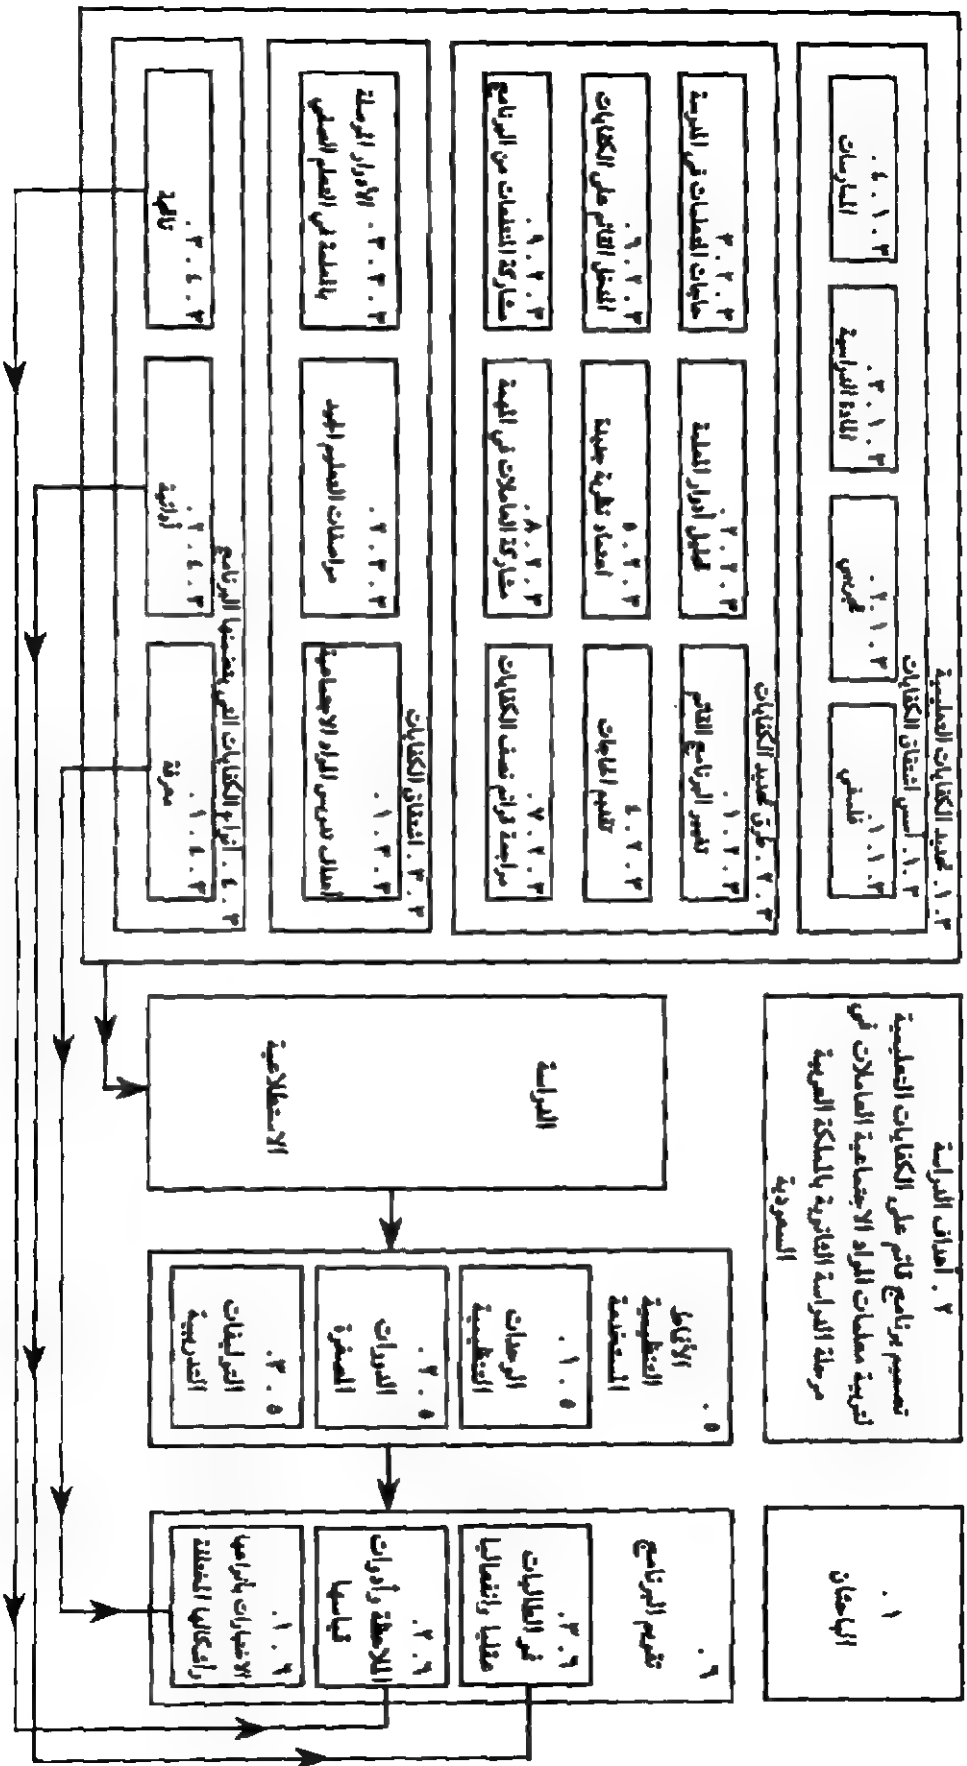 ١ .
الباحثان
٢ . أهداف الدراسة
تصميم برنامج قائم على الكفايات التعليمية
لتربية معلمات المواد الاجتماعية العاملات في
مرحلة الدراسة الثانوية بالمملكة العربية
السعودية
٣ . ١ . تحديد الكفايات التعليمية
٣ . ١ . أسس اشتقاق الكفايات
٣ . ١ . ١ .
فلسفي
٣ . ١ . ٢ .
تجريبي
٣ . ١ . ٣ .
المادة الدراسية
٣ . ١ . ٤ .
الممارسات
٣ . ٢ . طرق تحديد الكفايات
٣ . ٢ . ١ .
تفسير البرنامج القائم
٣ . ٢ . ٢ .
تحليل أدوار المعلمة
٣ . ٢ . ٣
حاجات المتعلمات في المدرسة
٣ . ٢ . ٤
تقييم الحاجات
٣ . ٢ . ٥
اعتماد نظرية جديدة
٣ . ٢ . ٦ .
المدخل القائم على الكفايات
٣ . ٢ . ٧ .
مراجعة قوائم تصف الكفايات
٣ . ٢ . ٨ .
مشاركة العاملات في المهنة
٣ . ٢ . ٩ .
مشاركة المتعلمات من البرنامج
٣ . ٣ . اشتقاق الكفايات
٣ . ٣ . ١ .
أهداف تدريس المواد الاجتماعية
٣ . ٣ . ٢ .
مواصفات التعليم الجيد
٣ . ٣ . ٣ .
الأدوار الموصلة
بالمعلمة في التعلم الصفي
٣ . ٤ . أنواع الكفايات التي يتضمنها البرنامج
٣ . ٤ . ١ .
معرفة
٣ . ٤ . ٢ .
أدائية
٣ . ٤ . ٣ .
ناتجية
الدراسة
الاستطلاعية
٥ .
الأنماط
التنظيمية
المستخدمة
٥ . ١ .
الوحدات
التنظيمية
٥ . ٢ .
الدورات
المصغرة
٥ . ٣ .
التوليفات
التدريبية
٦ .
تقويم البرنامج
٦ . ٣ .
نمو الطالبات
عقليا وانفعاليا
٦ . ٢ .
الملاحظة وأدوات
قياسها
٦ . ١ .
الاختبارات بأنواعها
وأشكالها المختلفة